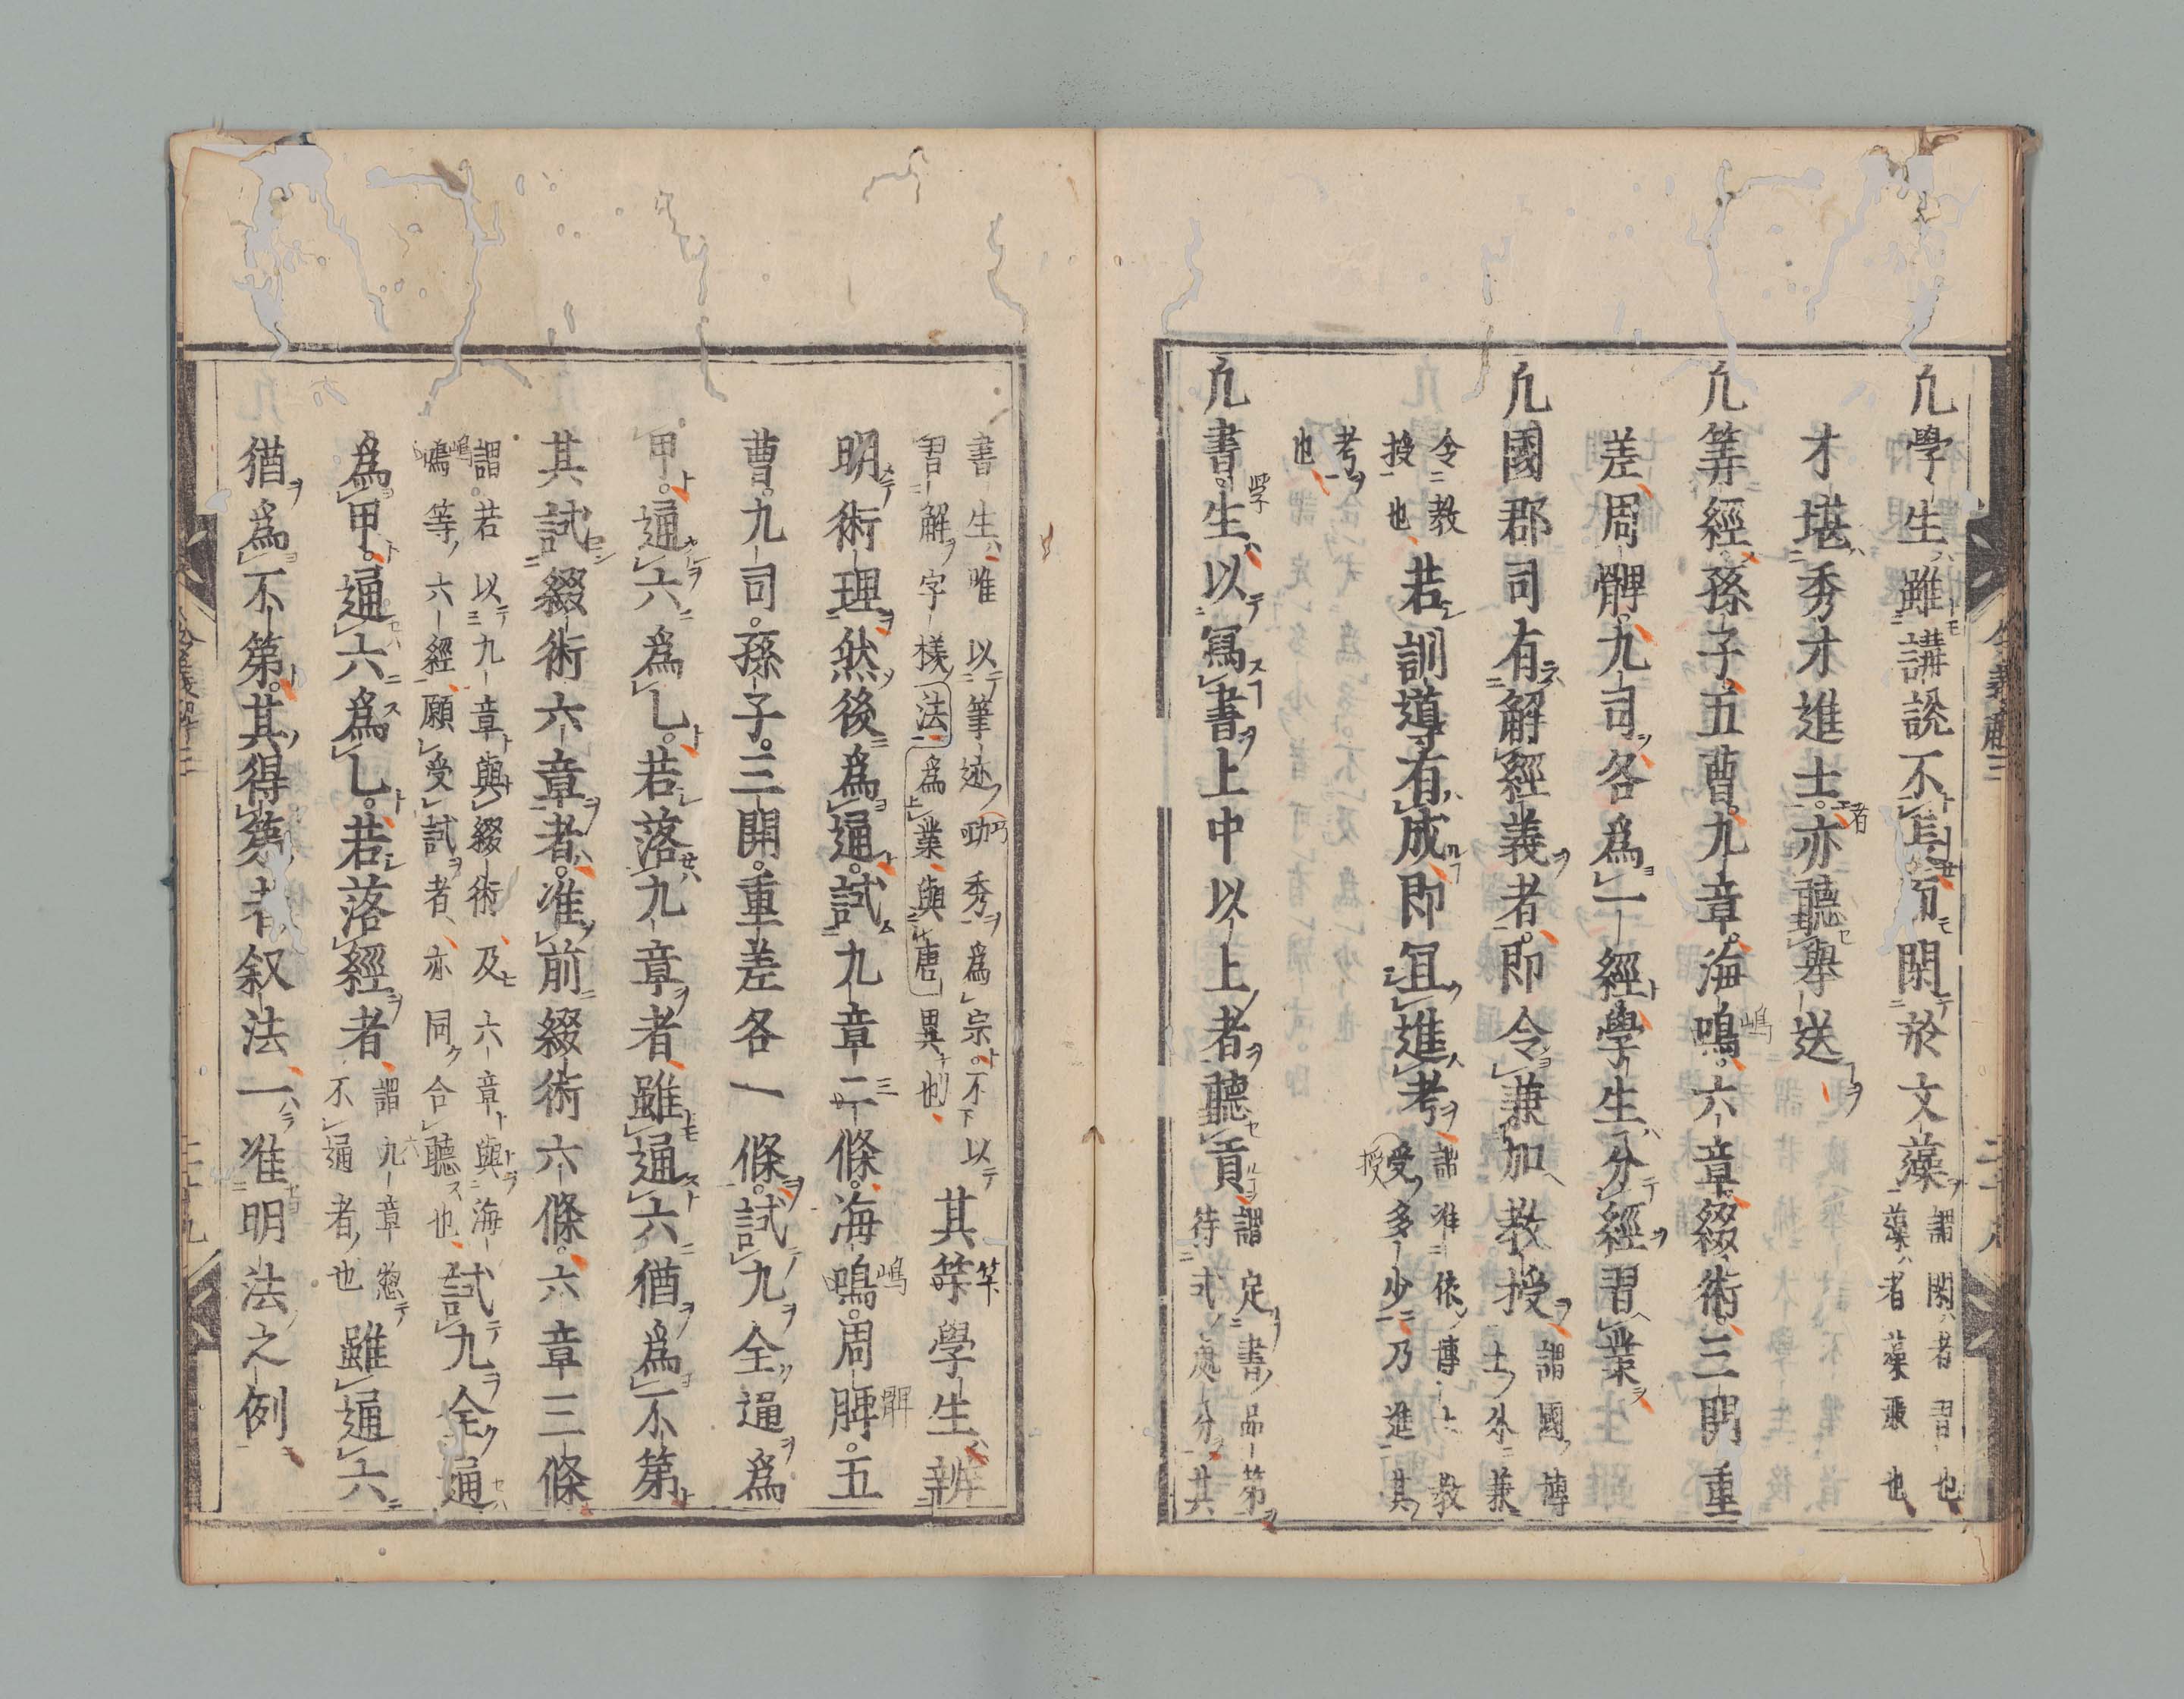 凢學生雖講說不長而閑於文藻謂閑者習也
藻者藻麗也
才堪秀才進士亦聽舉送
凢筭經孫子五曹九章海嶋六章綴術三開重
差周髀九司各爲一經學生分經習業
凢國郡司有解經義者即令兼加教授謂國博
士外兼
令教
授也若訓導有成即冝進考謂准依博士教
受多少乃進其
考
也
凢書生以寫書上中以上者聽貢謂定書品第
待式處分其
書生唯以筆迹巧秀爲宗不以
君解字樣法爲業與唐異也其筭學生辨
明術理然後爲通試九章二條海嶋周髀五
曹九司孫子三開重差各一條試九全通爲
甲通六爲乙若落九章者雖通六猶爲不第
其試綴術六章者准前綴術六條六章三條
謂若以九章與綴術及六章與海
嶋等六經願受試者亦同合聽也試九全通
爲甲通六爲乙若落經者謂九章惣
不通者也雖通六
猶爲不第其得第者叙法一准明法之例